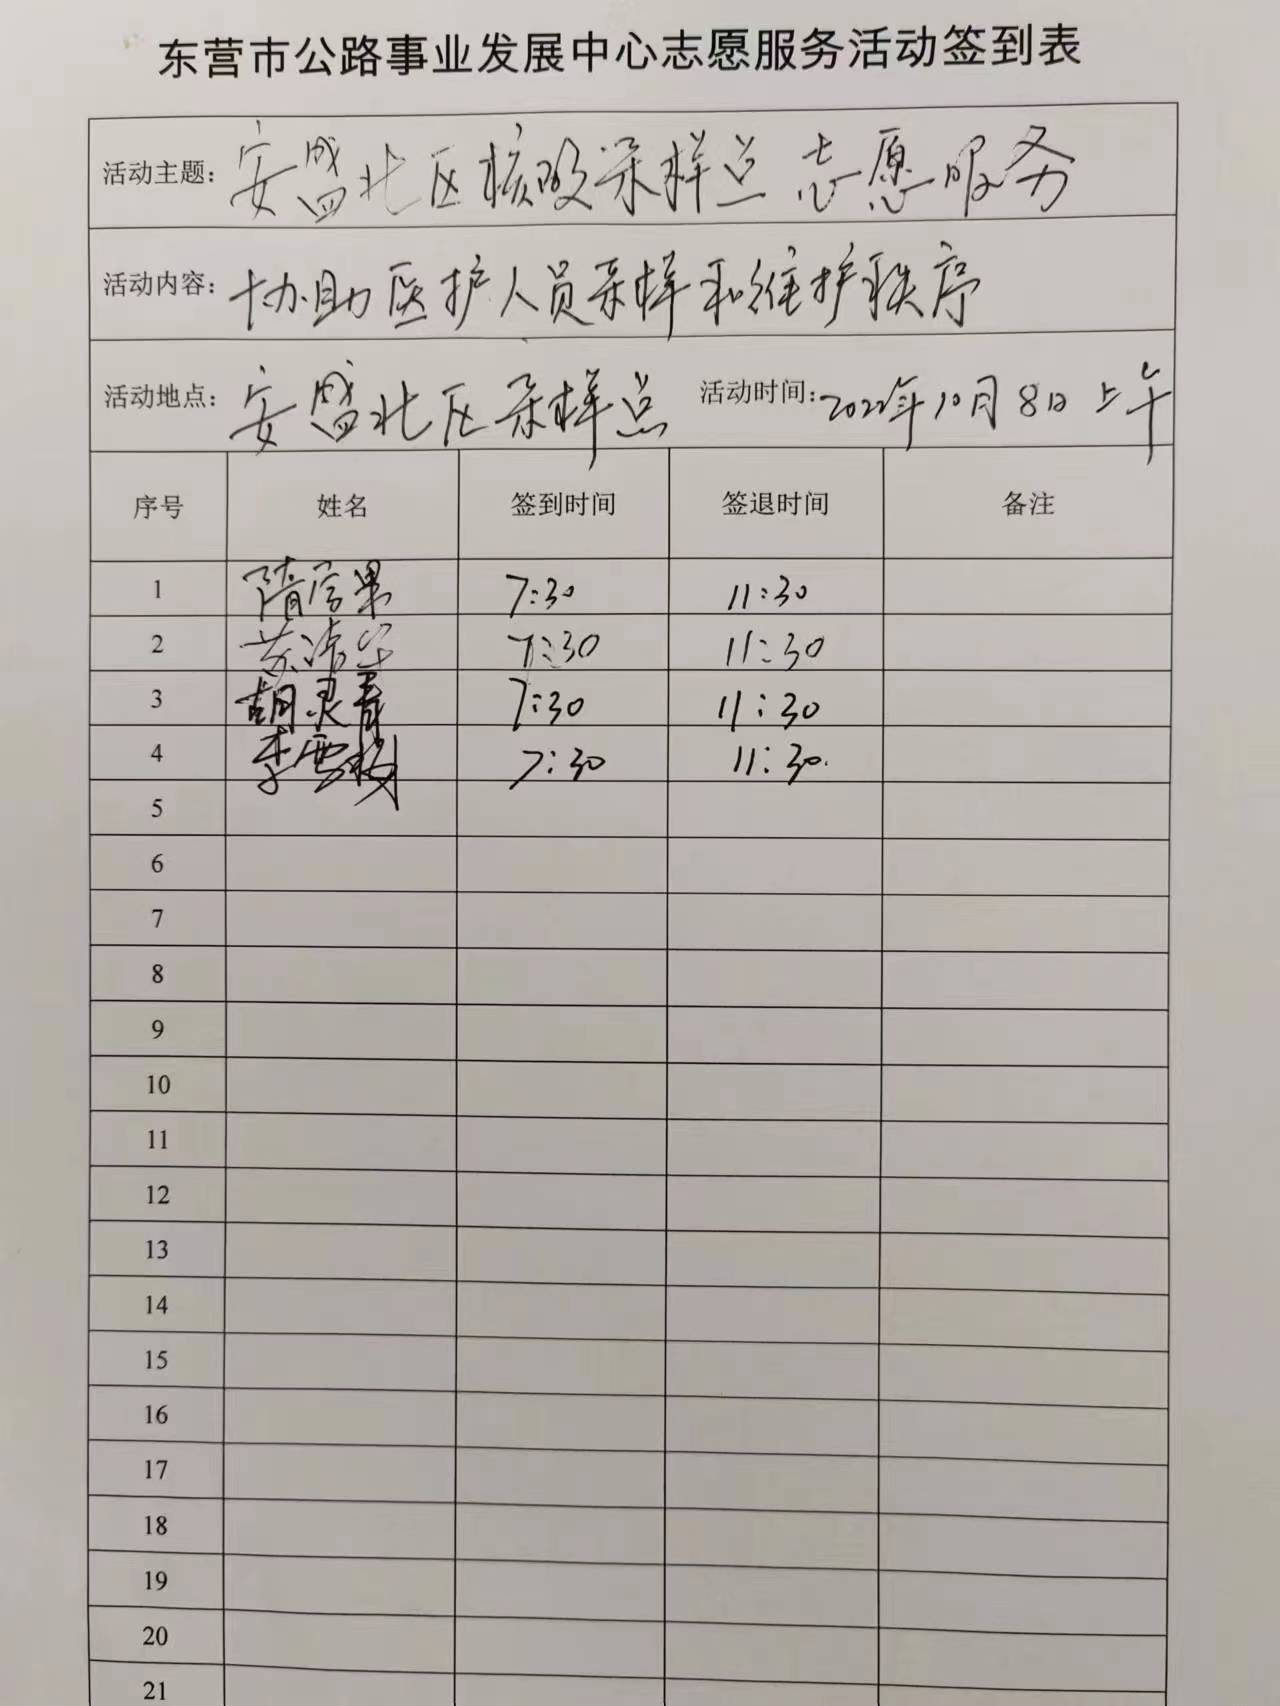 东营市公路事业发展中心志愿服务活动签到表
活动主题：安盛北区核酸采样点志愿服务
活动内容：协助医护人员采样和维护秩序
活动地点：安盛北区采样点 活动时间：2022年10月8日上午
序号 姓名 签到时间 签退时间 备注
1 隋学果 7:30 11:30
2 苏 7:30 11:30
3 胡灵青 7:30 11:30
4 李雪梅 7:30 11:30
5
6
7
8
9
10
11
12
13
14
15
16
17
18
19
20
21